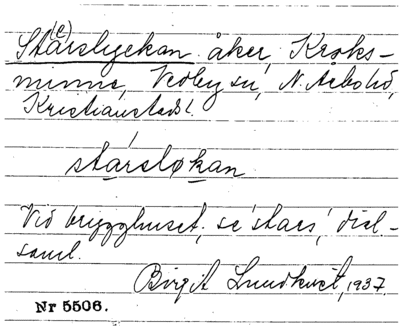 St(e)arslyckan åker, Kroks-
minne, Vedby sn, N. Åsbo hd,
Kristianstads l.
stársløkan
Vid brygghuset, se 'stars', dial-
saml.
Birgit Lundkvist, 1937.
Nr 5506.